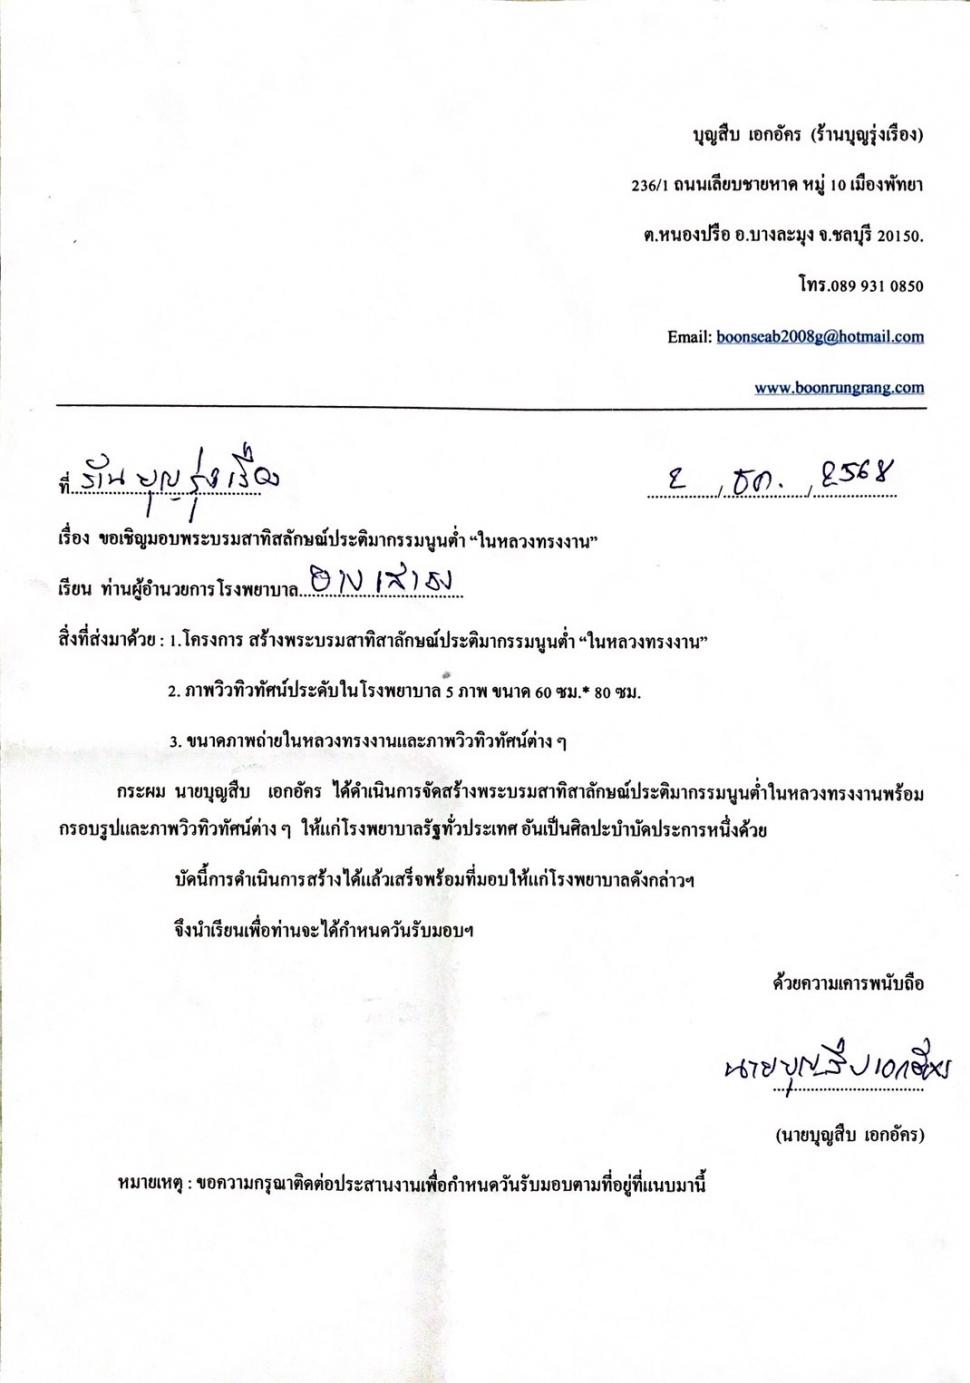 บุญสืบ เอกอัคร (ร้านบุญรุ่งเรือง)
236/1 ถนนเลียบชายหาด หมู่ 10 เมืองพัทยา
ต.หนองปรือ อ.บางละมุง จ.ชลบุรี 20150.
โทร.089 931 0850
Email: boonseab2008g@hotmail.com
www.boonrungrang.com
ที่ ร้าน บุญรุ่งเรือง 2 / ธค. / 2568
เรื่อง ขอเชิญมอบพระบรมสาทิสลักษณ์ประติมากรรมนูนต่ำ “ในหลวงทรงงาน”
เรียน ท่านผู้อำนวยการโรงพยาบาล
สิ่งที่ส่งมาด้วย : 1.โครงการ สร้างพระบรมสาทิสาลักษณ์ประติมากรรมนูนต่ำ “ในหลวงทรงงาน”
2. ภาพวิวทิวทัศน์ประดับในโรงพยาบาล 5 ภาพ ขนาด 60 ซม.* 80 ซม.
3. ขนาดภาพถ่ายในหลวงทรงงานและภาพวิวทิวทัศน์ต่าง ๆ
กระผม นายบุญสืบ เอกอัคร ได้ดำเนินการจัดสร้างพระบรมสาทิสาลักษณ์ประติมากรรมนูนต่ำในหลวงทรงงานพร้อม
กรอบรูปและภาพวิวทิวทัศน์ต่าง ๆ ให้แก่โรงพยาบาลรัฐทั่วประเทศ อันเป็นศิลปะบำบัดประการหนึ่งด้วย
บัดนี้การดำเนินการสร้างได้แล้วเสร็จพร้อมที่มอบให้แก่โรงพยาบาลดังกล่าวฯ
จึงนำเรียนเพื่อท่านจะได้กำหนดวันรับมอบฯ
ด้วยความเคารพนับถือ
นายบุญสืบ เอกอัคร
(นายบุญสืบ เอกอัคร)
หมายเหตุ : ขอความกรุณาติดต่อประสานงานเพื่อกำหนดวันรับมอบตามที่อยู่ที่แนบมานี้